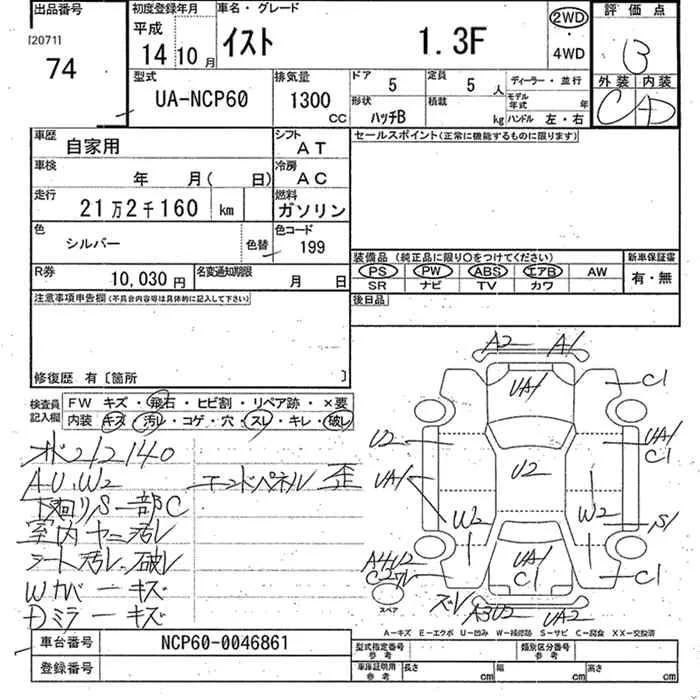 出品番号
[2071]
74
初度登録年月
平成
14 10月
車名・グレード
イスト 1.3F
2WD
・
4WD
評価点
B
外装 内装
C D
型式
UA-NCP60
排気量
1300
CC
ドア
5
定員
5 人
形状
ハッチB
積載
kg
ディーラー・並行
モデル年式 年
ハンドル 左・右
車歴
自家用
シフト
AT
車検
年 月( 日)
冷房
AC
走行
21万2千160 km
燃料
ガソリン
色
シルバー
色替
色コード
199
R券
10,030円
名変通知期限
月 日
セールスポイント(正常に機能するものに限ります)
装備品 (純正品に限り○をつけてください)
PS PW ABS エアB AW
SR ナビ TV カワ
新車保証書
有・無
後日品
注意事項申告欄(不具合内容等は具体的に記入して下さい)
修復歴 有[箇所 ]
検査員
記入欄
FW キズ・飛石・ヒビ割・リペア跡・×要
内装 キズ・汚レ・コゲ・穴・スレ・キレ・破レ
212140
AU.W2 エンドパネル 歪
下廻りS 一部C
室内 ヤニ汚レ
シート汚レ、破レ
Wカバーキズ
Dミラーキズ
A2 A1
UA1
C1
U2
UA1
C1
U2
UA1
W2
W2
S1
A4U2
UA1
C1
C1
スペア
A3U2
UA2
A-キズ E-エクボ U-凹み W-補修跡 S-サビ C-腐食 XX-交換済
車台番号
NCP60-0046861
登録番号
型式指定番号
参考
類別区分番号
参考
車庫証明用
参考
長さ cm
幅 cm
高さ cm